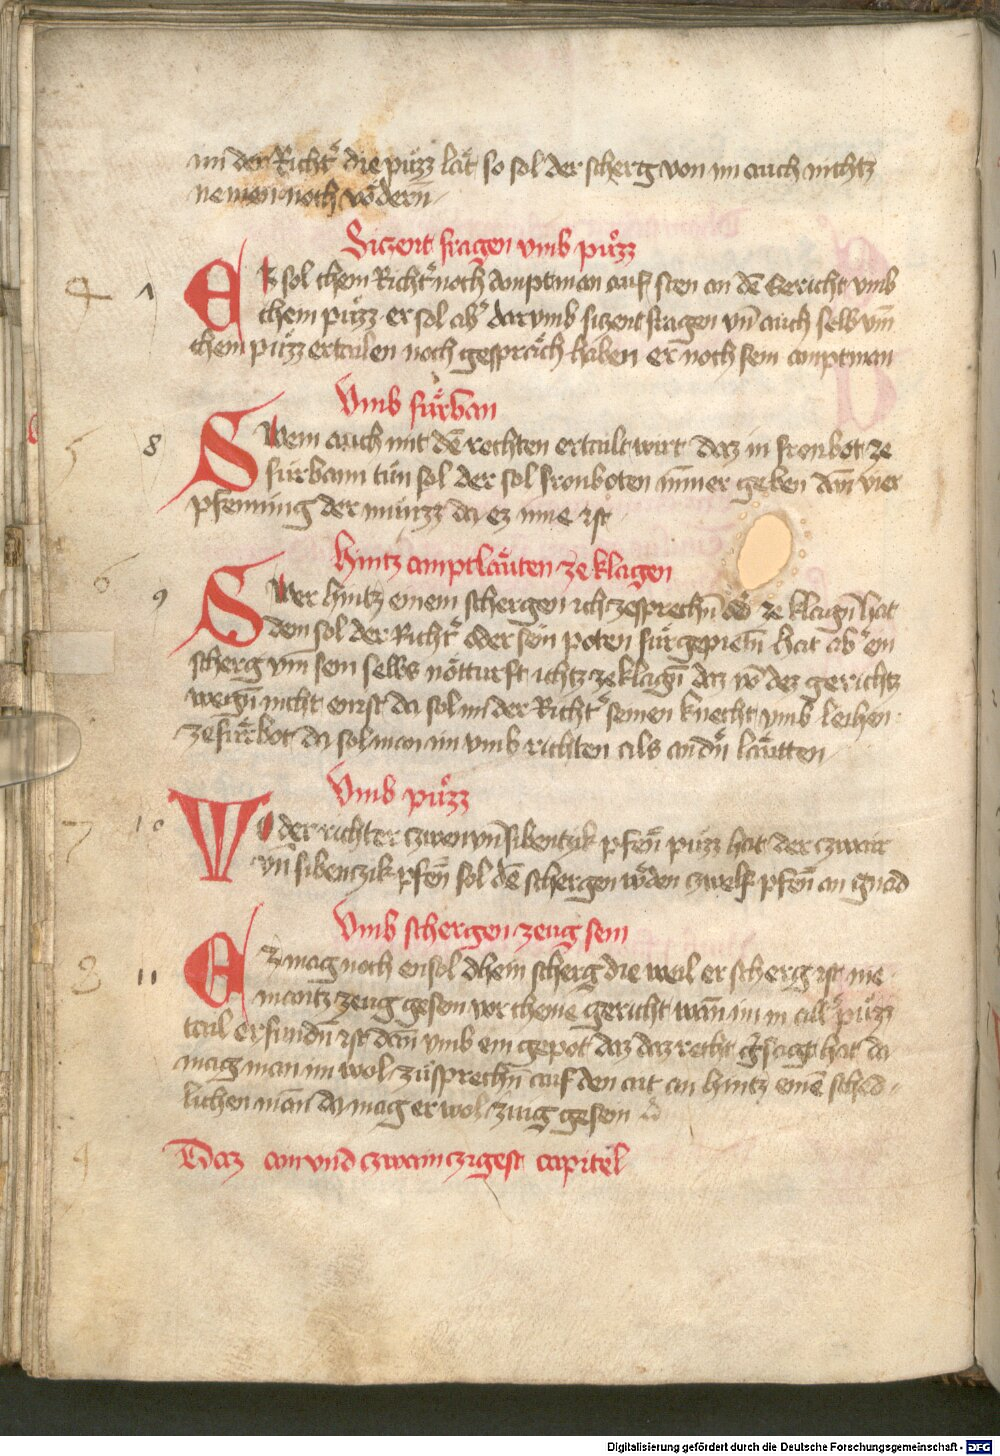 im der Richt͛ die püzz lät so sol der scherg von im auch nichtz
nemen noch vödern
Siczent fragen vmb püzz
4 7 Ez sol chem Richt͛ noch amptman auf sten an dē Gericht vmb
chein püzz er sol ab͛ darvmb siczent fragen vn̄ auch selb vm̄
chein püzz ertailen noch gespräch haben er noch sein amptman
Vmb fürban
5 8 Swem auch mit dē rechten ertailt wirt daz in fronbot ze
fürbann tün sol der sol fronboten nim̄er geben dan̄ vier
pfenning der münzz da ez inne ist
Hintz amptläuten ze klagen
6 9 Swer hintz einem schergen ich zesprechn̄ od͛ ze klagn̄ hat
dem sol der Richt͛ oder sein poten fürgepietn̄ hat ab͛ ein
scherg vm̄ sein selbs nötturft ichtz ze klagn̄ daz vō dez gerichtz
wegn̄ nicht enist da sol im der Richt͛ seinen knecht vmb leihen
ze fürbot da sol man im vmb richten als andn̄ läutten
Vmb püzz
7 10 Wo der richter czwen vn̄ sibentzik pfen̄ püzz hat der czwair
vn̄ sibenczik pfen̄ sol dē schergen w͛den czwelf pfen̄ an gnad
Vmb schergen zeug sein
8 11 Ez mag noch ensol dhein scherg die weil er scherg ist nie
mantz zeug gesein vor cheine gericht wan̄ im in all͛ püzz
tail erfundn̄ ist dan̄ vmb ein gepot daz daz recht gesagt hat da
mag man im wol züsprechn̄ auf den ait an hintz einē sched
lichen man̄ da mag er wol zeug gesein
Daz ain vnd czwainczigest capitel
Digitalisierung gefördert durch die Deutsche Forschungsgemeinschaft - DFG